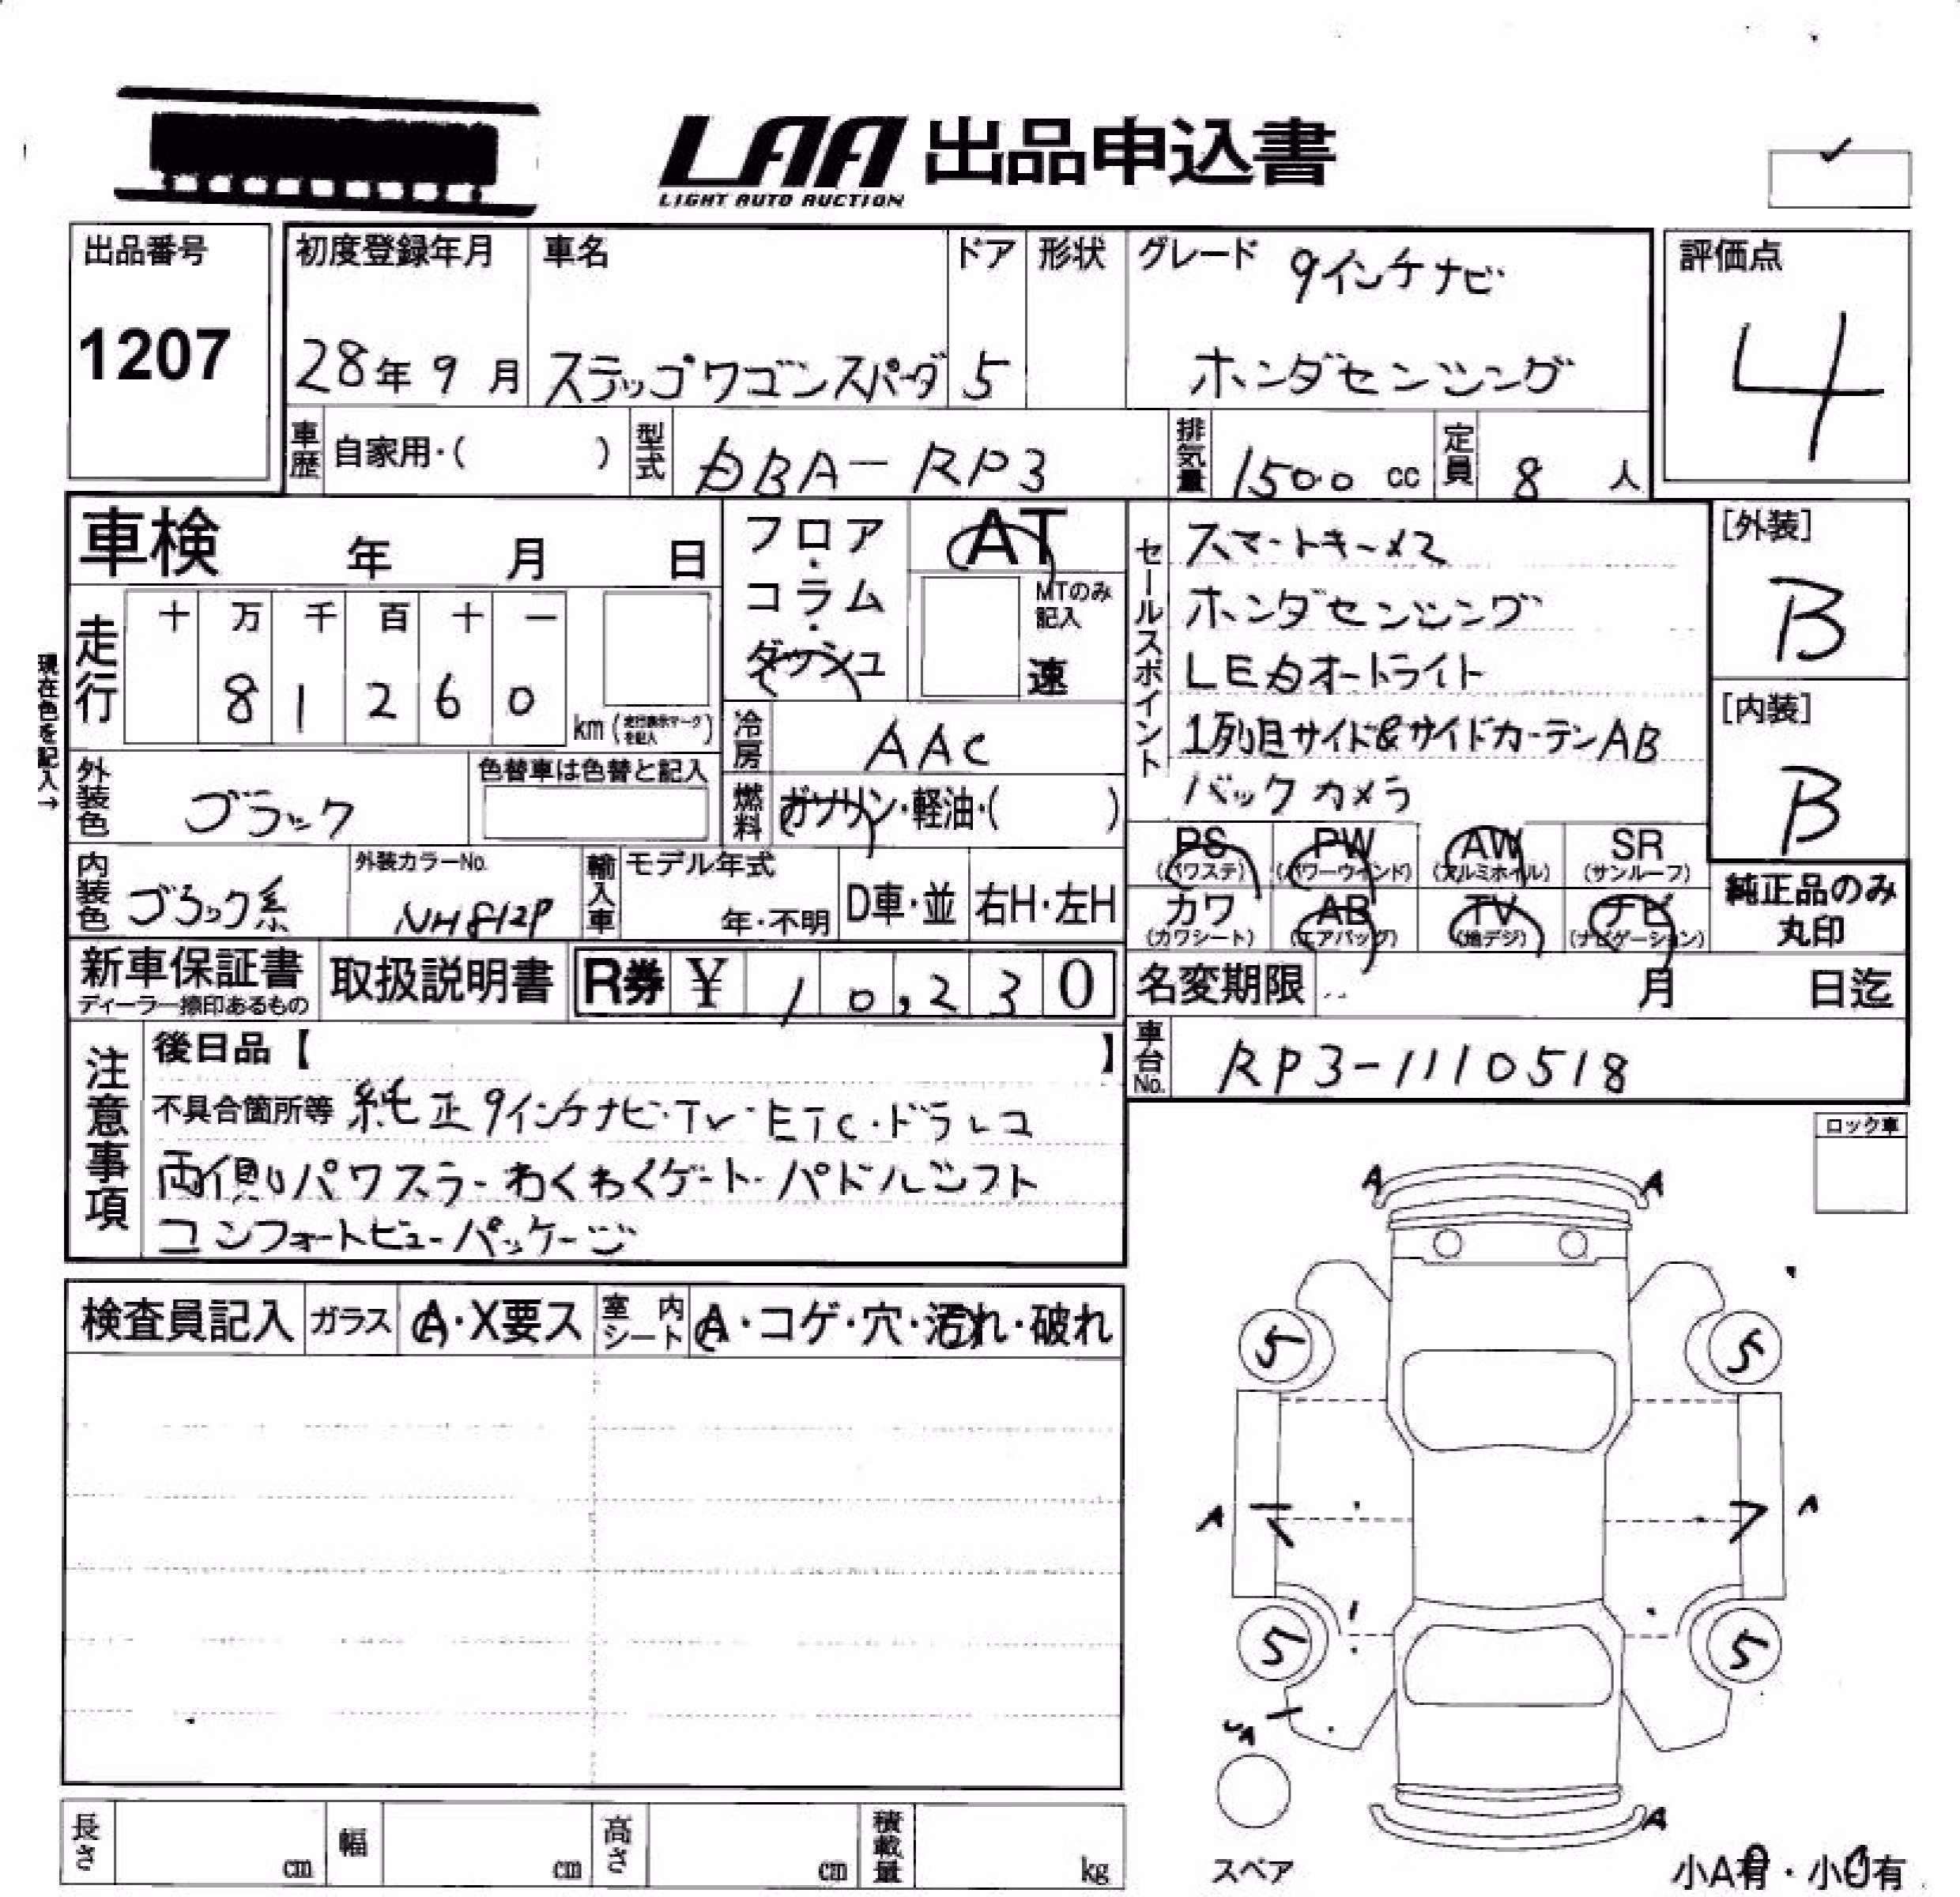 LAA 出品申込書
LIGHT AUTO AUCTION
出品番号
1207
初度登録年月
28年 9月
車名
ステップワゴンスパーダ
ドア
5
形状
グレード
9インチナビ
ホンダセンシング
評価点
4
車歴 自家用・( )
型式 DBA-RP3
排気量 1500 cc
定員 8 人
車検 年 月 日
フロア・コラム・ダッシュ
AT
MTのみ記入
速
セールスポイント
スマートキー×2
ホンダセンシング
LEDオートライト
1列目サイド&サイドカーテンAB
バックカメラ
[外装]
B
[内装]
B
現在色を記入→
走行
十 万 千 百 十 一
8 1 2 6 0
km (走行表示マークを記入)
冷房 AAC
燃料 ガソリン・軽油・( )
外装色 ブラック
色替車は色替と記入
内装色 ブラック系
外装カラーNo.
NH812P
輸入車
モデル年式
年・不明
D車・並
右H・左H
PS (パワステ)
PW (パワーウインド)
AW (アルミホイル)
SR (サンルーフ)
カワ (カワシート)
AB (エアバッグ)
TV (地デジ)
ナビ (ナビゲーション)
純正品のみ
丸印
新車保証書
ディーラー捺印あるもの
取扱説明書
R券 ¥ 10,230
名変期限 月 日迄
車台No. RP3-1110518
注意事項
後日品【 】
不具合箇所等 純正9インチナビ・TV・ETC・ドラレコ
両側パワスラ・わくわくゲート・パドルシフト
コンフォートビューパッケージ
ロック車
検査員記入
ガラス A・X要ス
室内シート A・コゲ・穴・汚れ・破れ
A A
5 5
A A
5 5
A
スペア
小A有・小U有
長さ cm
幅 cm
高さ cm
積載量 kg